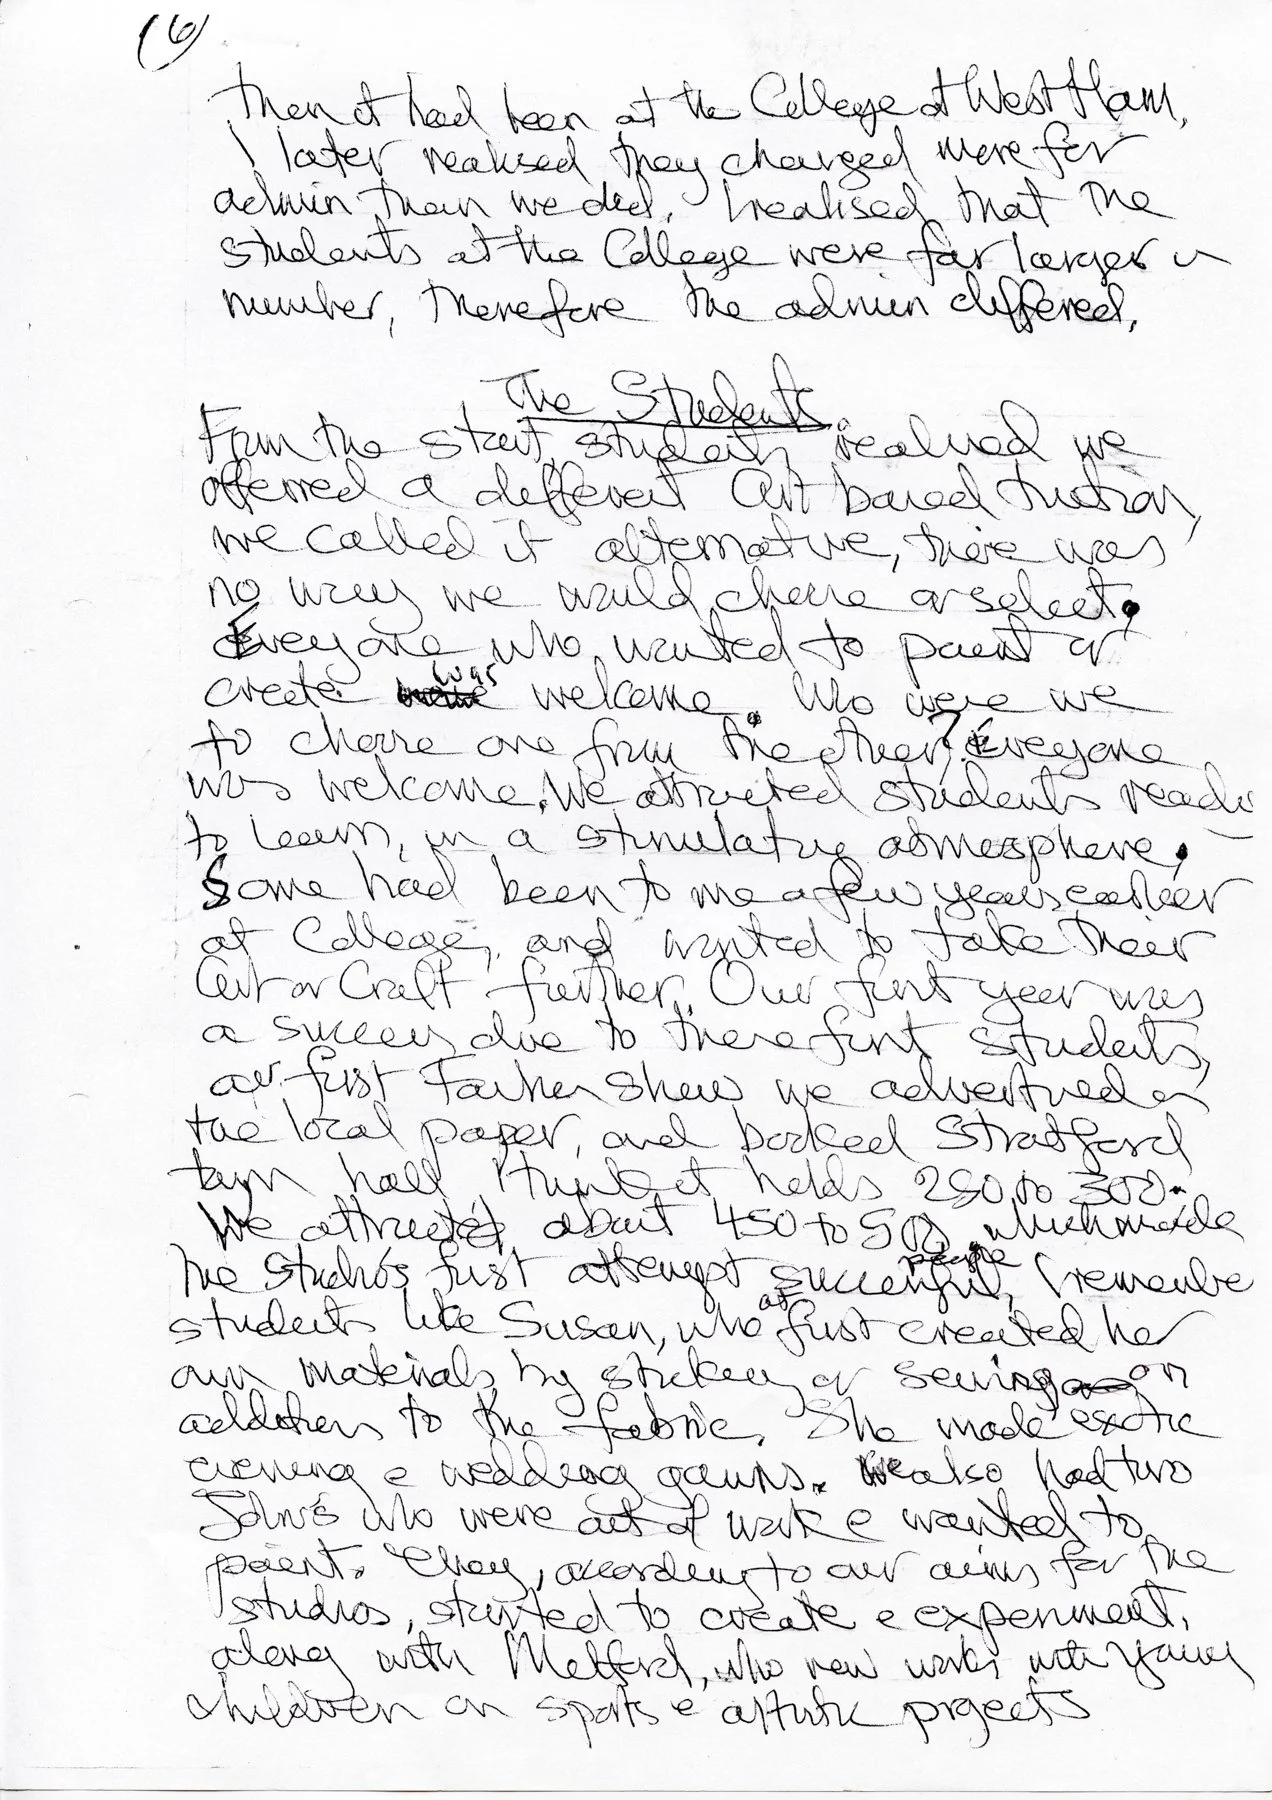 (6)
then it had been at the College at West Ham,
I later realised they charged more for
admin than we did, I realised that the
students at the College were far larger in
number, therefore the admin differed,
The Students
From the start, students realised we
offered a different Art based tuition,
we called it alternative, there was
no way we would choose or select.
Everyone who wanted to paint or
create was welcome. Who were we
to choose one from the other? Everyone
was welcome. We attracted students ready
to learn, in a stimulating atmosphere.
Some had been to me a few years earlier
at College, and wanted to take their
Art or Craft further. Our first year was
a success due to these first students,
our first Fashion Show we advertised in
the local paper, and booked Stratford
town hall I think it holds 250 to 300.
We attracted about 450 to 500 people which made
the Studio's first attempt successful, I remember
students like Susan, who at first created her
own materials by sticking or sewing on
additions to the fabric. She made exotic
evening e wedding gowns. We also had two
John's who were out of work e wanted to
paint. They, according to our aims for the
studios, started to create e experiment,
along with Melford, who now works with young
children on sports e artistic projects